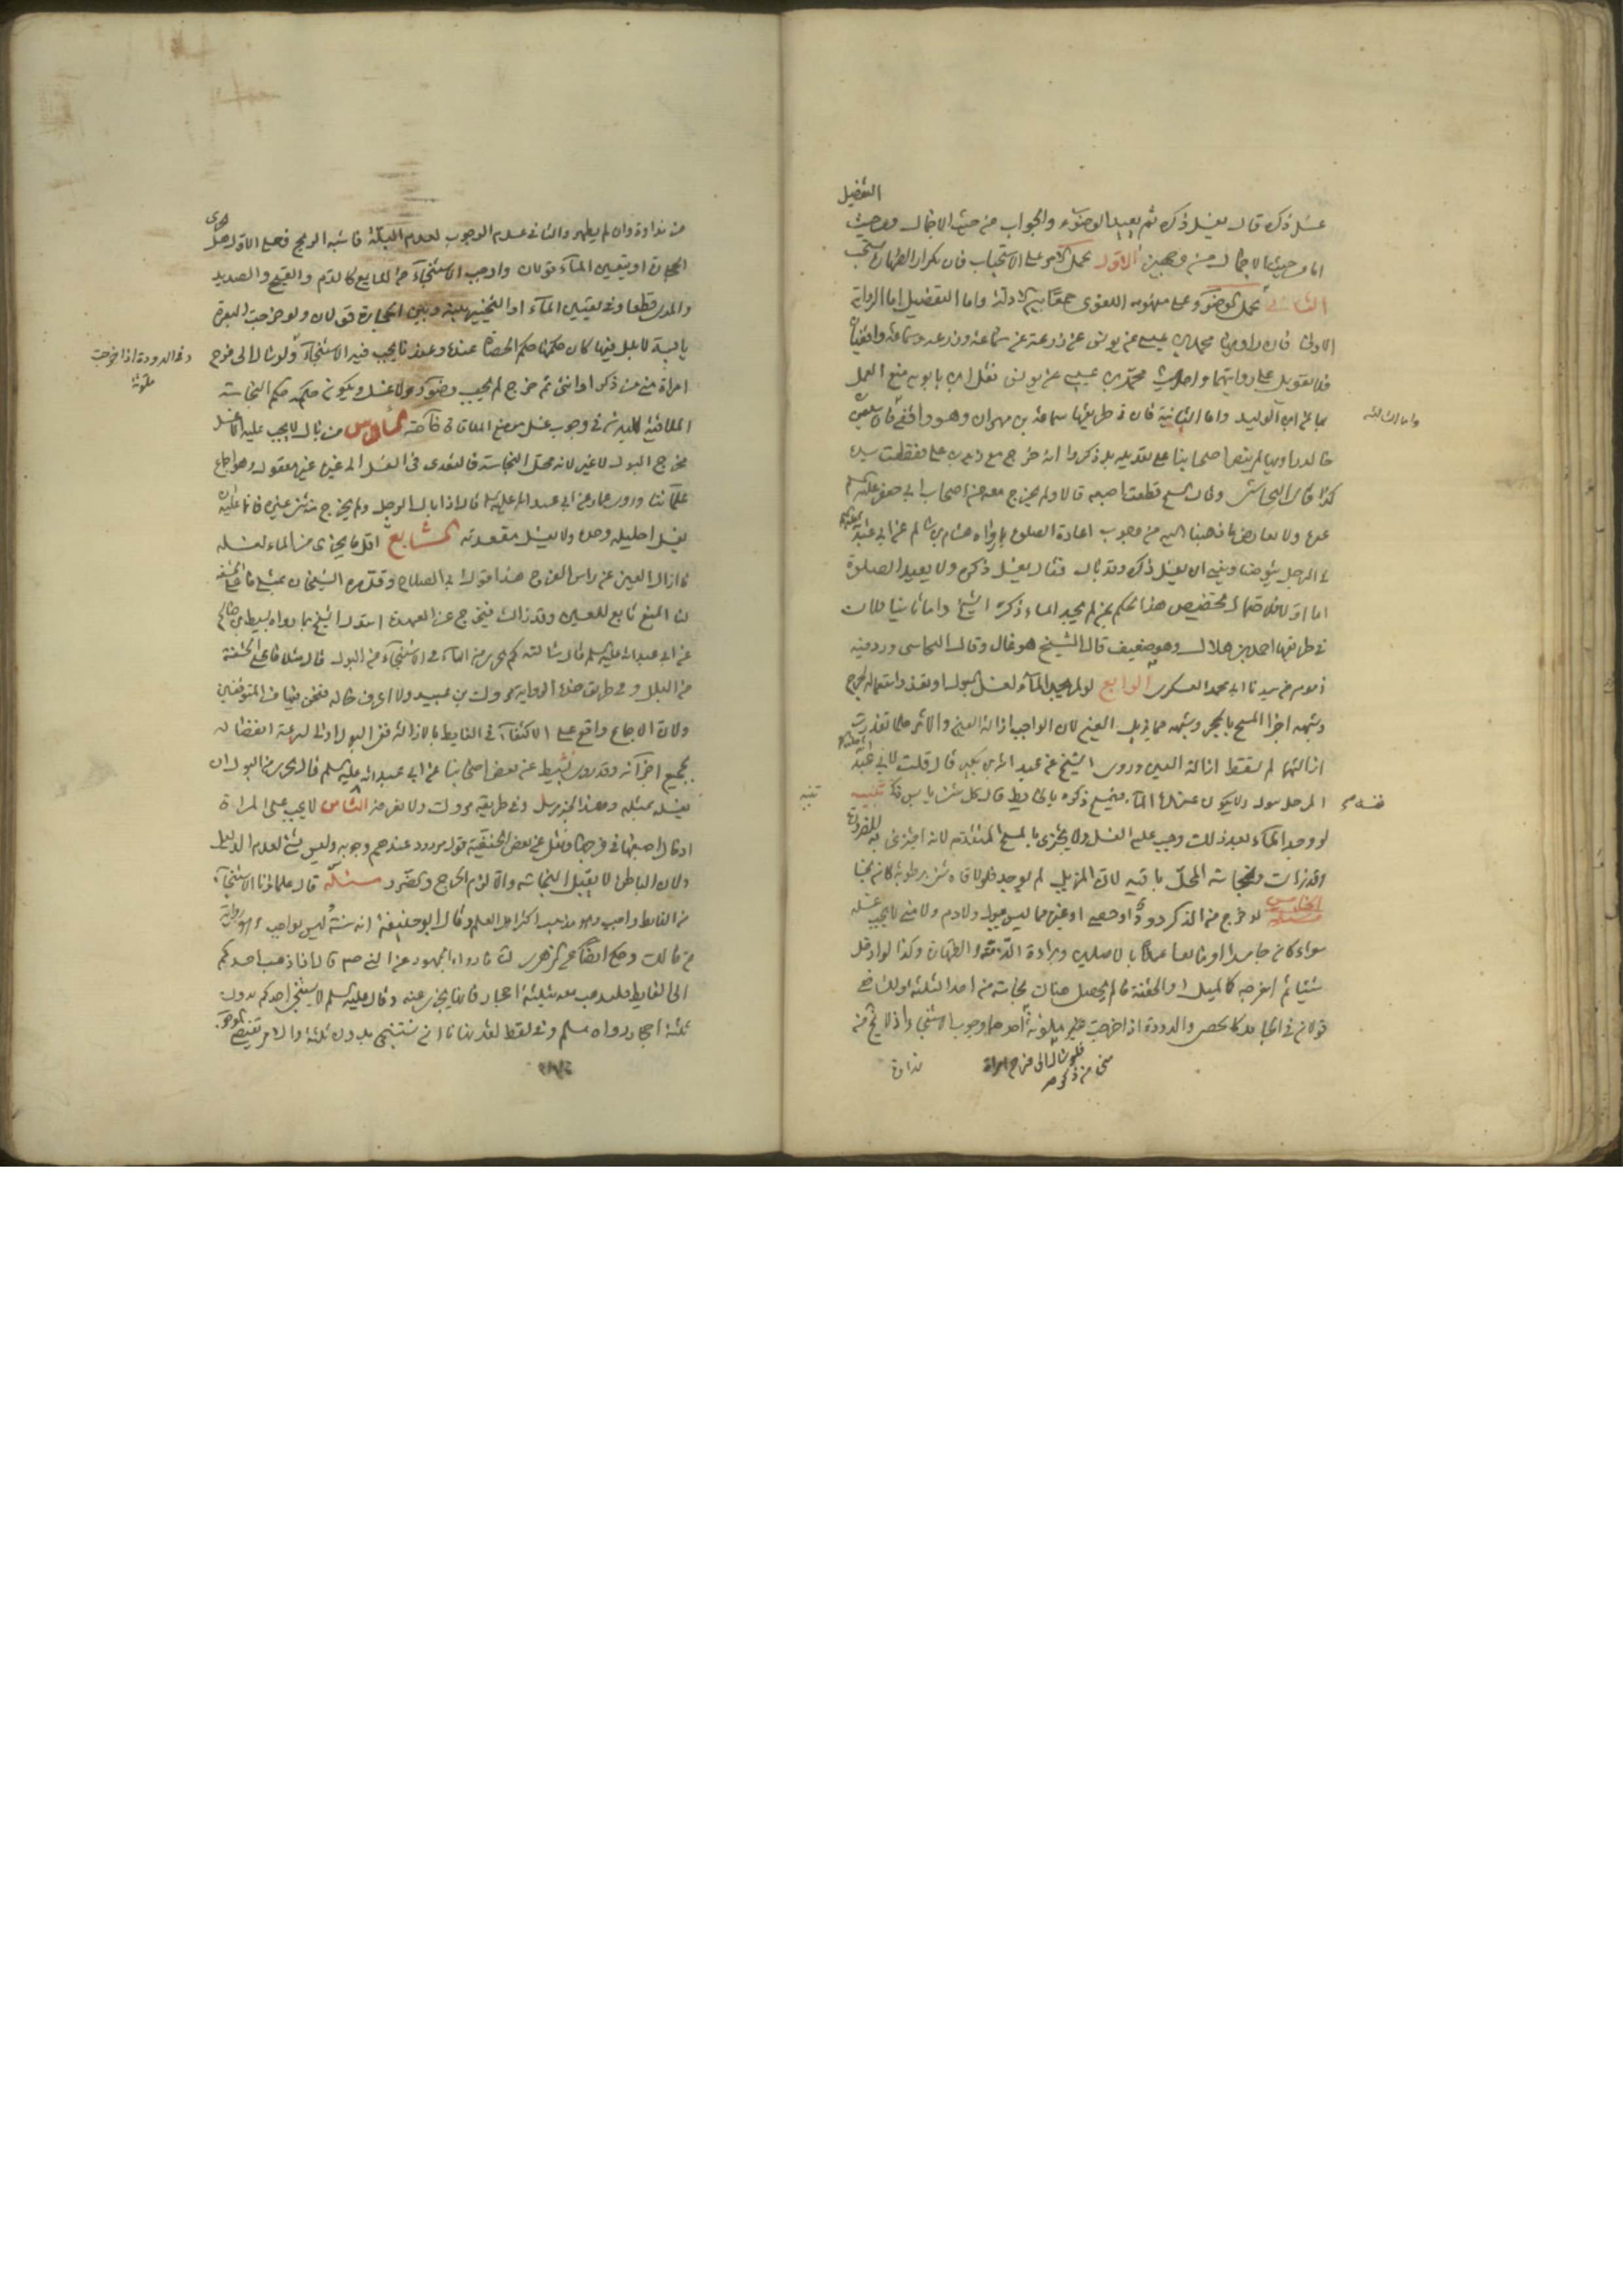 التفصيل
غسل ذكره قال يغسل ذكره ثم يعيد الوضوء والجواب من حيث الاجمال ومن حيث
اما من حيث الاجمال فمن وجهين الاول يحمل الامر على الاستحباب فان تكرار الطهارة مستحب
الثاني يحمل الوضوء على مفهومه اللغوى جمعا بين الادلة واما التفصيل اما الرواية
الاولى فان راويها محمد بن عيسى عن يونس عن زرعة عن سماعة وزرعة وسماعة واقفيان
فلا تعويل على روايتهما واحاديث محمد بن عيسى عن يونس نقل ابن بابويه منع العمل
بها عن ابن الوليد واما الثانية فان في طريقها سماعة بن مهران وهو واقفى
واما الثالثة
خالد راويها لم ينص اصحابنا على تعديله بل ذكروا انه خرج مع زيد بن على فقطعت يده
كذا قال النجاشى وقال الشيخ قطعت اصبعه قال ولم يخرج معه من اصحاب ابى جعفر عليه السلم
غيره ولا يعارض ما ذهبنا اليه من وجوب اعادة الصلوة ما رواه هشام بن سالم عن ابى عبد الله
في الرجل يتوضأ وينسى ان يغسل ذكره وقد بال فقال يغسل ذكره ولا يعيد الصلوة
اما اولا فلاحتمال تخصيص هذا الحكم بمن لم يجد الماء ذكره الشيخ واما ثانيا فلان
في طريقها احمد بن هلال وهو ضعيف قال الشيخ هو غال وقال النجاشى ورد فيه
ذموم من سيدنا ابى محمد العسكرى الرابع لو لم يجد الماء لغسل البول او تعذر استعماله لجرح
وشبهه اجزا المسح بالحجر وشبهه مما يزيل العين لان الواجب ازالة العين والاثر فلما تعذرت
ازالتهما لم تسقط ازالة العين وروى الشيخ عن عبد الله بن بكير قال قلت لابى عبد الله
الرجل يبول ولا يكون عنده الماء فيمسح ذكره بالحايط قال كل شئ يابس ذكى تنبيه
تنبيه
لو وجد الماء بعد ذلك وجب عليه الغسل ولا يجتزى بالمسح المتقدم لانه اجتزى به للضرورة
وقد زالت ونجاسة المحل باقية لان المزيل لم يوجد فلو لاقاه شئ برطوبة كان نجسا
الخامس لو خرج من الذكر دود او حصى او غيرهما مما ليس ببول ولا دم ولا منى لا يجب غسله
سواء كان جامدا او مائعا عملا بالاصلين وهو براءة الذمة والطهارة وكذا لو ادخل
شيئا ثم اخرجه كالميل او الحقنة ما لم يحصل هناك نجاسة من احد الثلثة وللشافعى
قولان في الجامد كالحصى والدودة اذا خرجت غير ملوثة احدهما وجوب الاستنجاء اذ لا يخ منه
نداوة
من نداوة وان لم يظهر والثانى عدم الوجوب لعدم البلة فاشبه الريح فعلى الاول هل
الحجارة او يتعين الماء قولان واوجب الاستنجاء من المايع كالدم والقيح والصديد
والمذى قطعا وفى تعيين الماء او التخيير بينه وبين الحجارة قولان ولو خرجت البعرة
يابسة لا بلل فيها كان حكمها حكم الحصاة عنده وعندنا يجب فيه الاستنجاء ولو سال الى فرج
وفى الدودة اذا خرجت
ملوثة
امراة منى من ذكر او انثى ثم خرج لم يجب وضوء ولا غسل ويكون حكمه حكم النجاسة
الملاقية للبدن في وجوب غسل موضع الملاقاة خاصة السادس من بال لا يجب عليه الا غسل
مخرج البول لا غير لانه محل النجاسة فالتعدى فى الغسل الى غيره غير معقول وهو اجماع
علمائنا وروى عمار عن ابى عبد الله عليه السلم قال اذا بال الرجل ولم يخرج منه شئ غيره فانما عليه ان
يغسل احليله وحده ولا يغسل مقعدته السابع اقل ما يجزى من الماء لغسله
ما ازال العين عن راس الفرج هذا قول ابى الصلاح وقدره الشيخان بمثلى ما على الحشفة
لنا المنع تابع للعين وقد زالت فيخرج عن العهدة استدل الشيخ بما رواه نشيط بن صالح
عن ابى عبد الله عليه السلم قال سالته كم يجزى من الماء في الاستنجاء من البول قال مثلا ما على الحشفة
من البلل وفى طريق هذه الرواية مروك بن عبيد ولا اعرف حاله فنحن فيها من المتوقفين
ولان الاجماع واقع على الاكتفاء فى الغايط بالازالة ففى البول اولى لسرعة انفصاله
بجميع اجزائه وقد روى نشيط عن بعض اصحابنا عن ابى عبد الله عليه السلم قال يجزى من البول ان
يغسله بمثله وهذا الخبر مرسل وفى طريقه مروك ولا نعرفه الثامن لا يجب على المراة
ادخال اصبعها فى فرجها ونقل عن بعض الحنفية قول مردود عندهم وجوبه وليس بشئ لعدم الدليل
ولان الباطن لا يقبل النجاسة والا لزم الحرج والضرر مسئلة قال علماؤنا الاستنجاء
من الغايط واجب وهو مذهب اكثر اهل العلم وقال ابو حنيفة انه سنة وليس بواجب وهو رواية
عن مالك وحكى ايضا عن المزنى لنا ما رواه الجمهور عن النبى صم قال اذا ذهب احدكم
الى الغايط فليذهب معه بثلثة احجار فانها تجزى عنه وقال عليه السلم لا يستنجى احدكم بدون
ثلثة احجار رواه مسلم وفى لفظ لقد نهانا ان نستنجى بدون ثلثة والامر يقتضى الوجوب